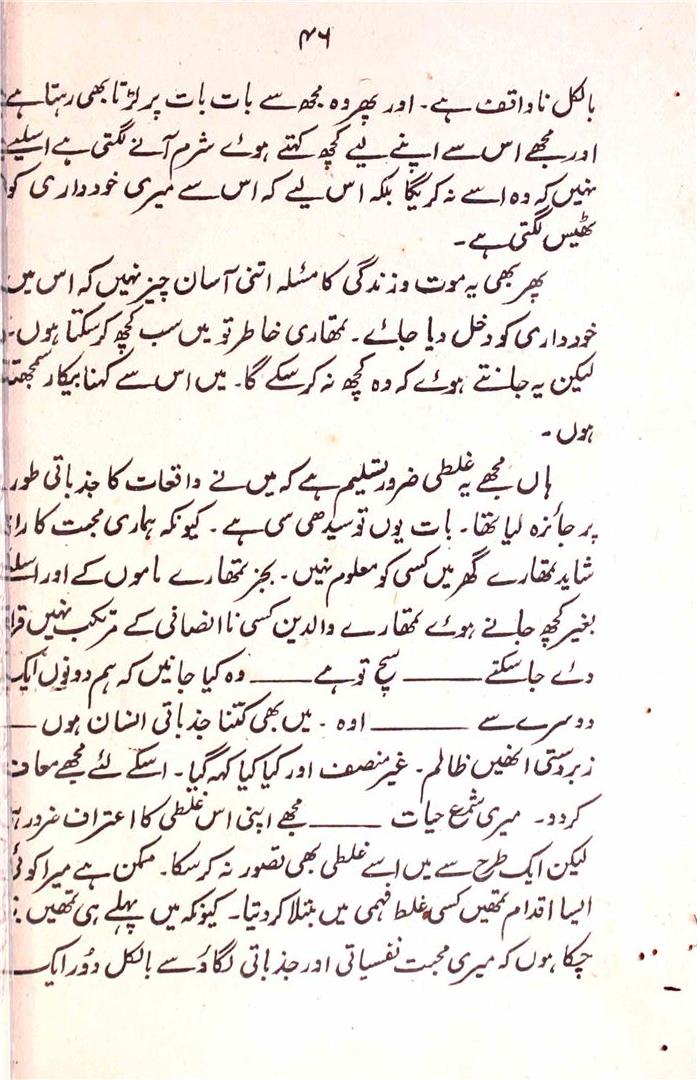 ۴۶
بالکل ناواقف ہے۔ اور پھر وہ مجھ سے بات بات پر لڑتا بھی رہتا ہے
اور مجھے اس سے اپنے لیے کچھ کہتے ہوئے شرم آنے لگتی ہے اسلیے
نہیں کہ وہ اسے نہ کریگا بلکہ اس لیے کہ اس سے میری خودداری کو
ٹھیس لگتی ہے۔
پھر بھی یہ موت و زندگی کا مسئلہ اتنی آسان چیز نہیں کہ اس میں
خودداری کو دخل دیا جائے۔ تمھاری خاطر تو میں سب کچھ کر سکتا ہوں۔
لیکن یہ جانتے ہوئے کہ وہ کچھ نہ کر سکے گا۔ میں اس سے کہنا بیکار سمجھتا
ہوں۔
ہاں مجھے یہ غلطی ضرور تسلیم ہے کہ میں نے واقعات کا جذباتی طور
پر جائزہ لیا تھا۔ بات یوں تو سیدھی سی ہے۔ کیونکہ ہماری محبت کا راز
شاید تمھارے گھر میں کسی کو معلوم نہیں۔ بجز تمھارے ماموں کے اور اسلیے
بغیر کچھ جانے ہوئے تمھارے والدین کسی ناانصافی کے مرتکب نہیں قرار
دئے جا سکتے ——— سچ تو ہے ——— وہ کیا جانیں کہ ہم دونوں ایک
دوسرے سے ——— اوہ۔ میں بھی کتنا جذباتی انسان ہوں —
زبردستی انھیں ظالم۔ غیر منصف اور کیا کیا کہہ گیا۔ اسکے لئے مجھے معاف
کردو۔ میری شمع حیات ——— مجھے اپنی اس غلطی کا اعتراف ضرور ہے
لیکن ایک طرح سے میں اسے غلطی بھی تصور نہ کر سکا۔ ممکن ہے میرا کوئی
ایسا اقدام تمھیں کسی غلط فہمی میں بتلا کر دیتا۔ کیونکہ میں پہلے ہی تمھیں
چکا ہوں کہ میری محبت نفسیاتی اور جذباتی لگاؤ سے بالکل دور ایک